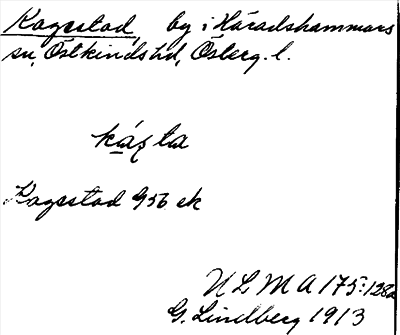 Kagestad, by i Häradshammars
sn, Östkinds hd, Österg. l.
Kagestad G56 ek
ULMA 175:128a
G. Lindberg 1913